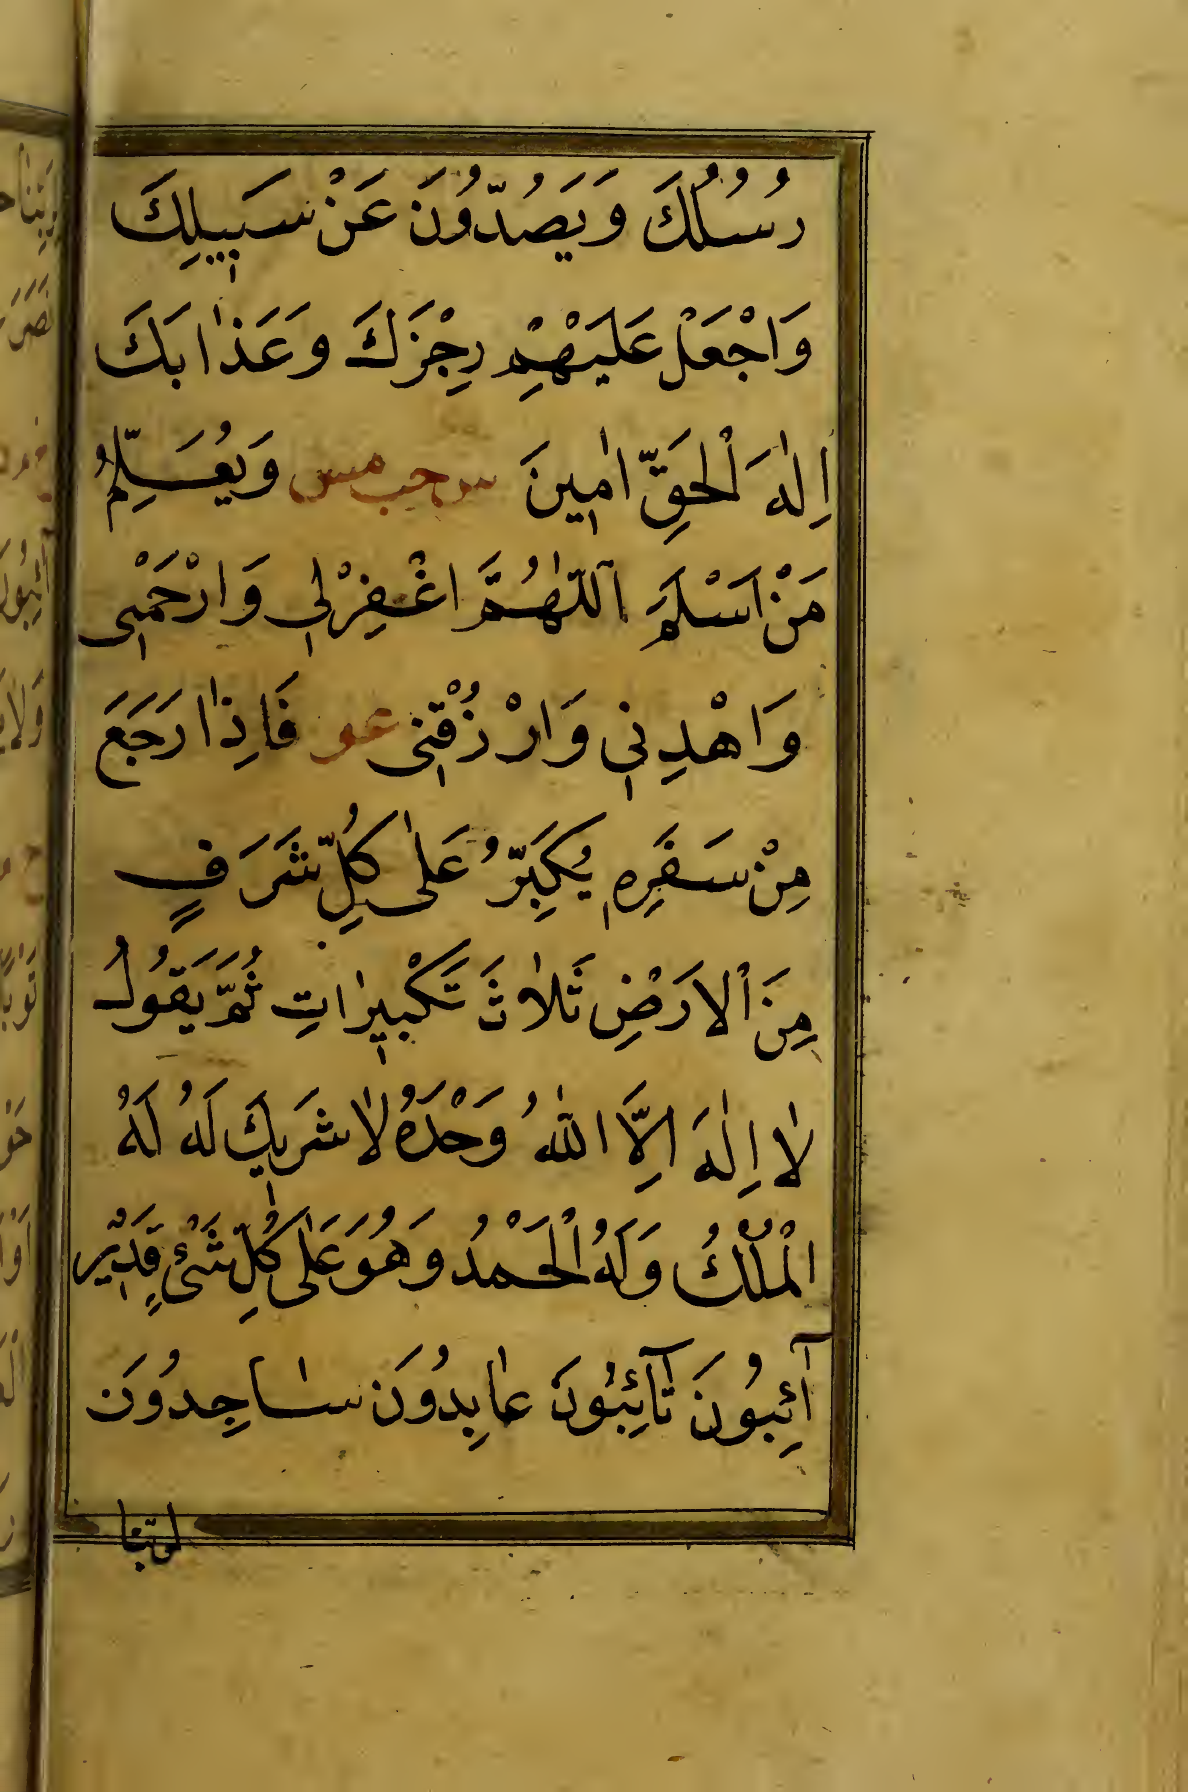 رُسُلَكَ وَيَصُدُّونَ عَنْ سَبِيلِكَ
وَاجْعَلْ عَلَيْهِمْ رِجْزَكَ وَعَذَابَكَ
اِلٰهَ الْحَقِّ اٰمِينَ س حب مس وَيُعَلِّمُ
مَنْ اَسْلَمَ اَللّٰهُمَّ اغْفِرْلِي وَارْحَمْنِي
وَاهْدِنِي وَارْزُقْنِي عو فَاِذَا رَجَعَ
مِنْ سَفَرِهِ يُكَبِّرُ عَلٰى كُلِّ شَرَفٍ
مِنَ الْاَرْضِ ثَلَاثَ تَكْبِيرَاتٍ ثُمَّ يَقُولُ
لَا اِلٰهَ اِلَّا اللّٰهُ وَحْدَهُ لَا شَرِيكَ لَهُ لَهُ
الْمُلْكُ وَلَهُ الْحَمْدُ وَهُوَ عَلٰى كُلِّ شَيْءٍ قَدِيرٌ
آئِبُونَ تَآئِبُونَ عَابِدُونَ سَاجِدُونَ
لربنا